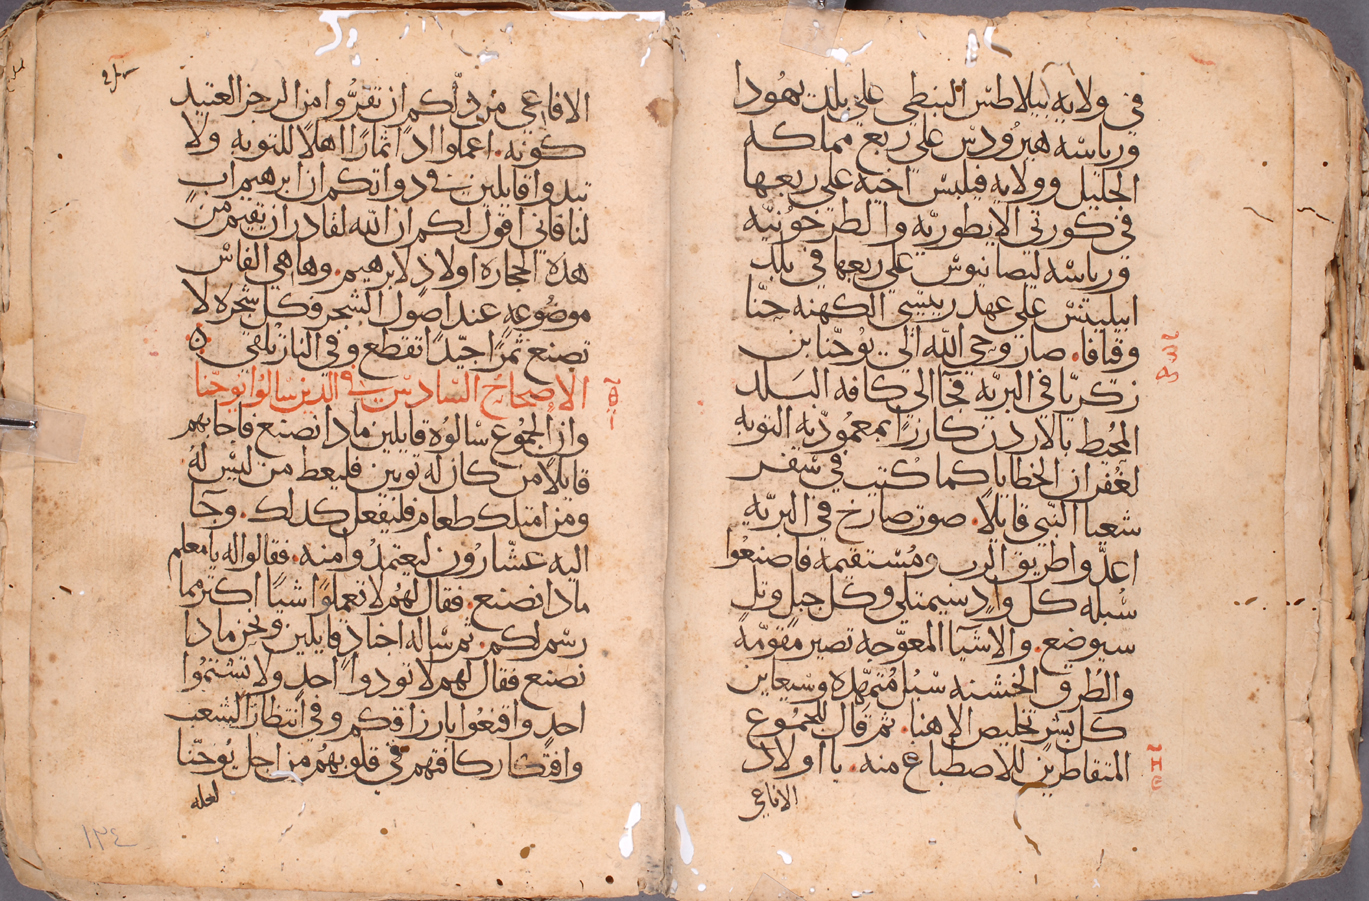 في ولايه بيلاطس البنطي علي بلدت يهودا
ورياسه هيرودس علي ربع مملكه
الجليل وولايه فيلبس اخيه علي ربعها
في كورتي الايطوريه والطرخونيه
ورياسه ليصانيوس علي ربعها في بلد
ابيلينس علي عهد رييسي الكهنه حنا
وقيافا. صار وحي الله الي يوحنا بن
زكريا في البريه فجا الي كافه البلد
المحيط بالاردن كارزا بمعموديه التوبه
لغفران الخطايا كما كتب في سفر
شعيا النبي قايلا. صوت صارخ في البريه
اعدوا طريق الرب ومستقيمه فاصنعوا
سبله كل واد سيمتلي وكل جبل وتل
سيوضع. والاشيا المعوجه تصير مقومه
والطرق الخشنه سبل متمهده وسيعاين
كل بشر تخليص الاهنا. ثم قال للجموع
المتقاطرين للاصطباغ منه. يا اولاد
الافاعي
الافاعي من دلكم ان تفروا من الرجز العتيد
كونه. اعملوا اذا اثمارا اهلا للتوبه ولا
تبدوا قايلين في ذواتكم ان ابرهيم اب
لنا فاني اقول لكم ان الله لقادر ان يقيم من
هذه الحجاره اولاد لابرهيم. وها هي الفاس
موضوعه عند اصول الشجر فكل شجره لا
تصنع ثمرا جيدا تقطع وفي النار تلقي
الاصحاح السادس في الذين سالوا يوحنا
وان الجموع سالوه قايلين ماذا نصنع فاجابهم
قايلا من كان له ثوبين فليعط من ليس له
ومن امتلك طعام فليفعل كذلك. وجا
اليه عشارون ليعتمدوا منه. فقالوا له يا معلم
ماذا نصنع. فقال لهم لا تعملوا شيا اكثر مما
رسم لكم. ثم ساله اجناد قايلين ونحن ماذا
نصنع فقال لهم لا توذوا احد ولا تشتموا
احد واقنعوا بارزاقكم وفي انتظار الشعب
وافتكار كافتهم في قلوبهم من اجل يوحنا
لعله
١٣٤